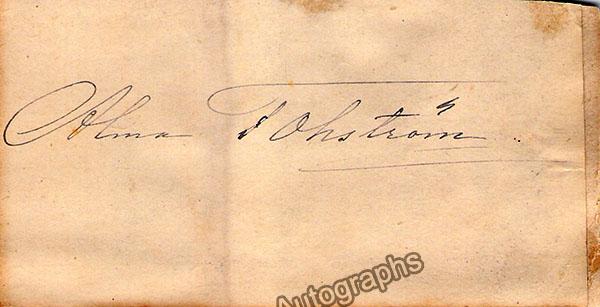 Alma Fohström
Autographs